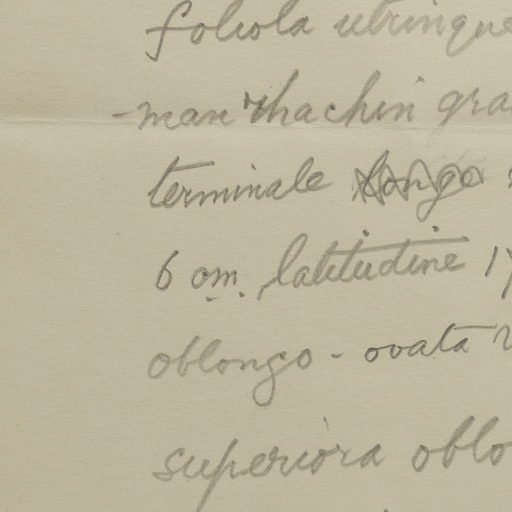 foliola utrinque
rhachin gra
terminale longo
6 cm. latitudine 1
oblongo-ovata
superiora oblo